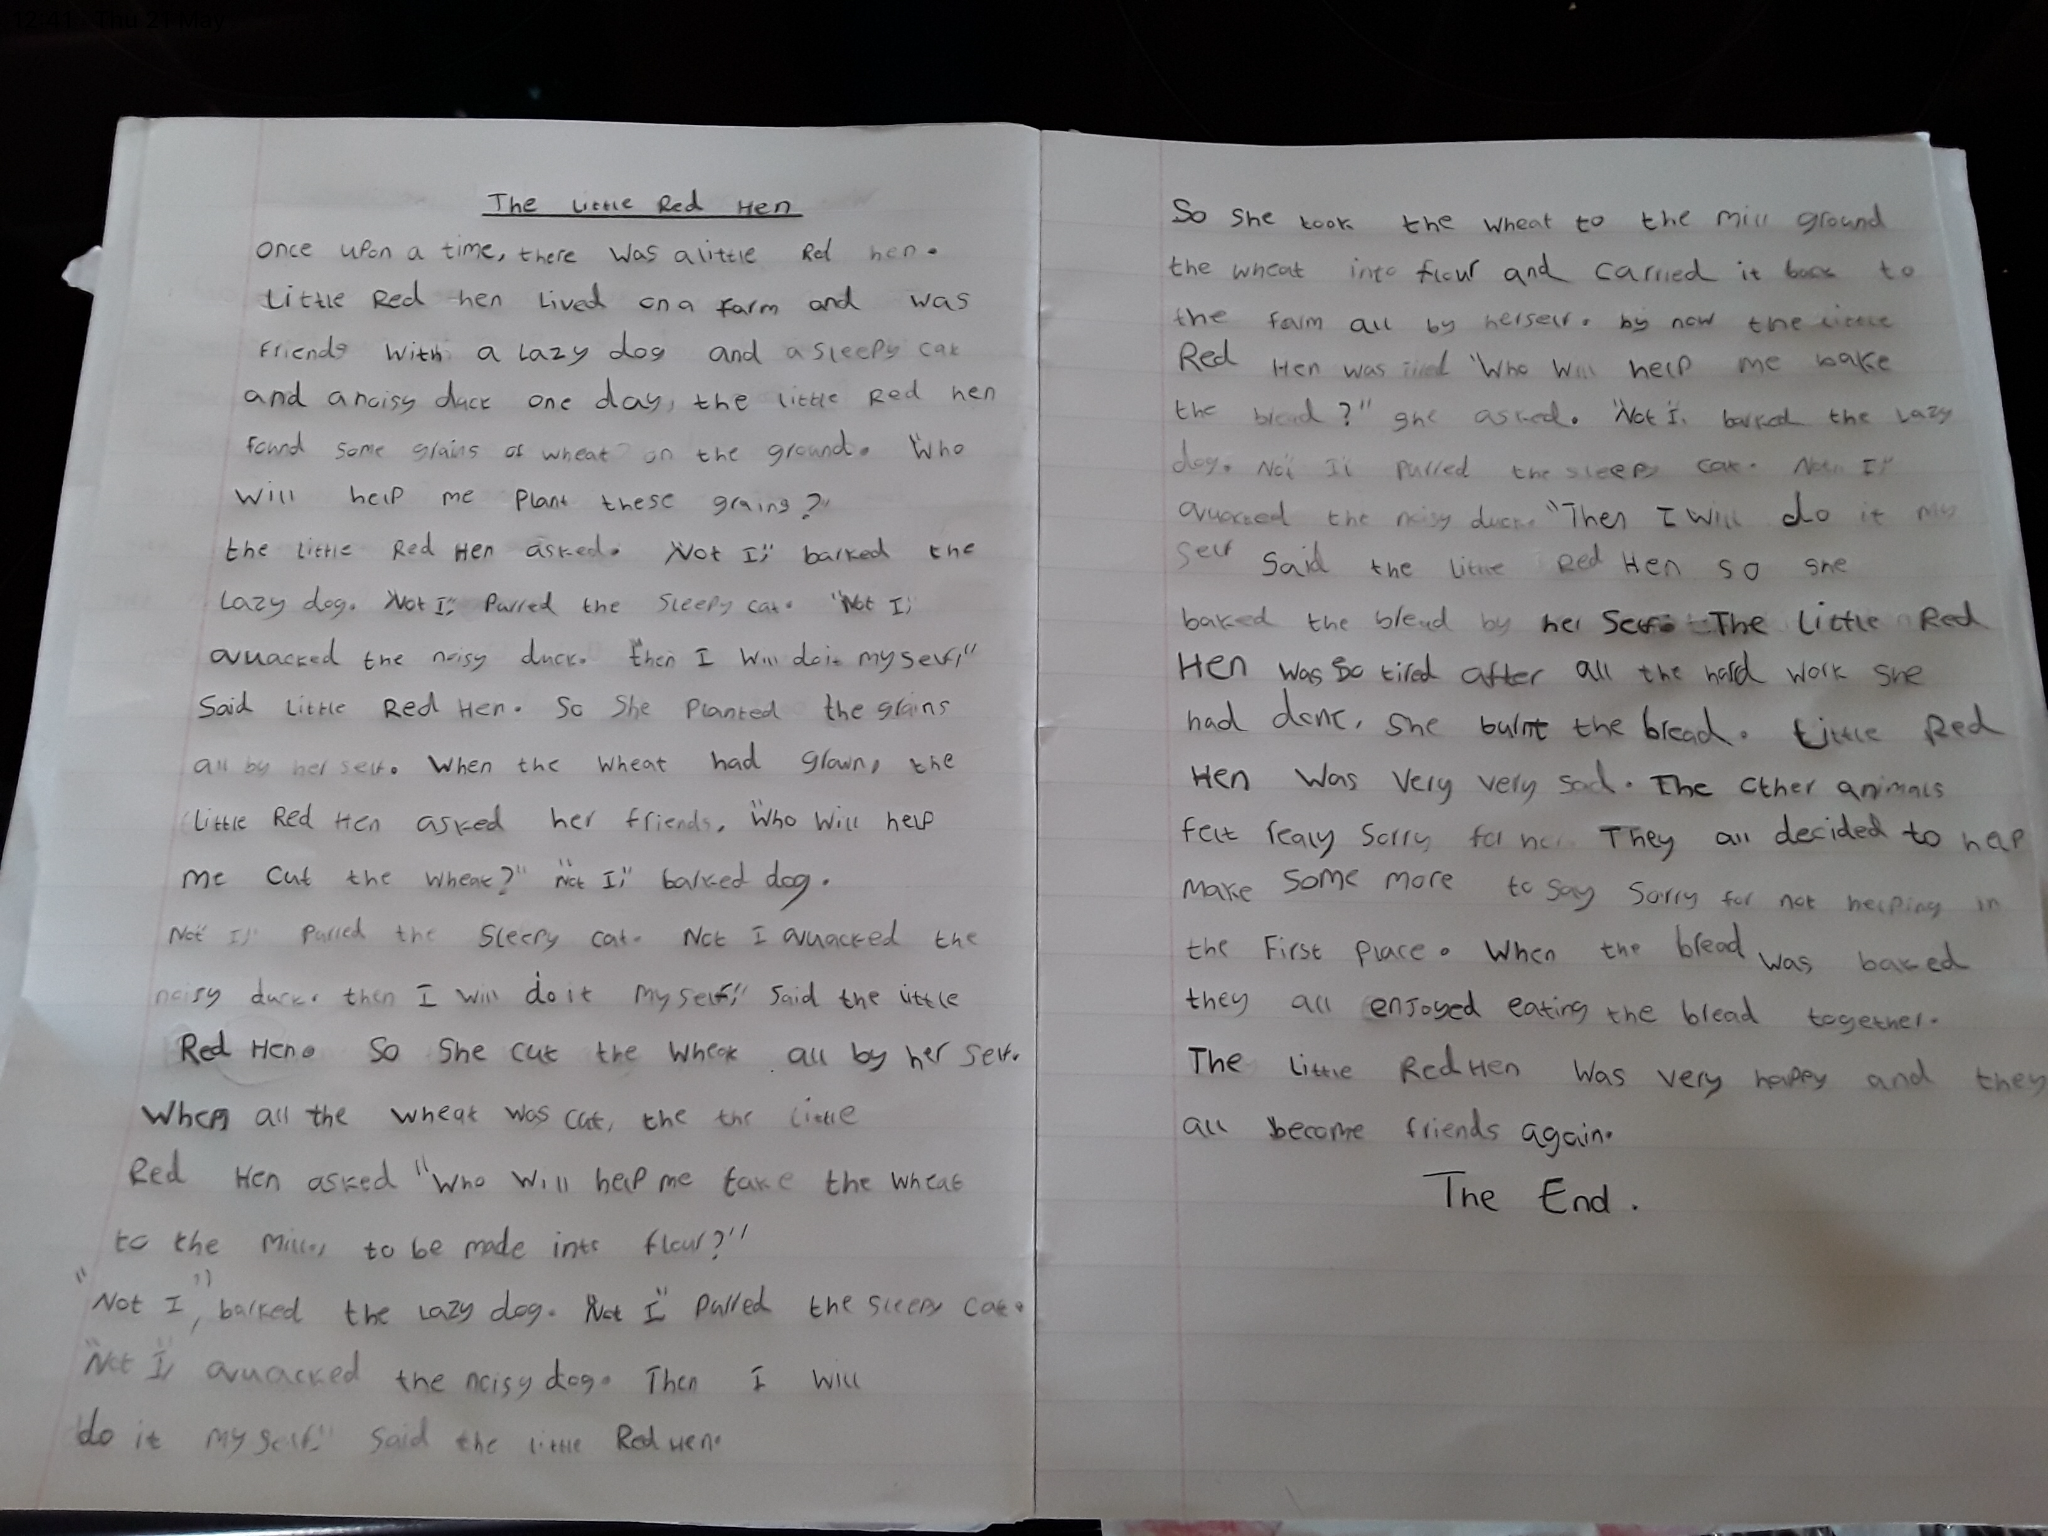 12:41 Thu 21 May
The Little Red Hen
Once upon a time, there was a little Red hen.
Little Red hen lived on a farm and was
friends with a lazy dog and a sleepy cat
and a noisy duck one day, the little Red hen
found some grains of wheat on the ground. "Who
will help me plant these grains?"
the little Red Hen asked. "Not I," barked the
lazy dog. "Not I," purred the sleepy cat. "Not I,"
quacked the noisy duck. "then I will do it my self,"
Said little Red Hen. So She planted the grains
all by her self. When the wheat had grown, the
little Red Hen asked her friends, "Who will help
me cut the wheat?" "Not I," barked dog.
Not I," purred the sleepy cat. Not I quacked the
noisy duck. then I will do it my self," said the little
Red Hen. So She cut the wheat all by her self.
When all the wheat was cut, the the little
Red Hen asked "Who will help me take the wheat
to the mill, to be made into flour?"
"Not I", barked the lazy dog. "Not I" purred the sleepy cat.
"Not I" quacked the noisy dog. Then I will
do it my self." said the little Red Hen.
So She took the wheat to the mill ground
the wheat into flour and carried it back to
the farm all by herself. by now the little
Red Hen was tired "Who will help me bake
the bread?" she asked. "Not I, barked the lazy
dog. Not I, purred the sleepy cat. Not I,"
quacked the noisy duck. "Then I will do it my
self Said the little Red Hen so she
baked the bread by her self. The little Red
Hen was so tired after all the hard work she
had done, she burnt the bread. Little Red
Hen was very very sad. The other animals
felt realy sorry for her. They all decided to help
make some more to say sorry for not helping in
the first place. When the bread was baked
they all enjoyed eating the bread together.
The little Red Hen was very happy and they
all become friends again.
The End.